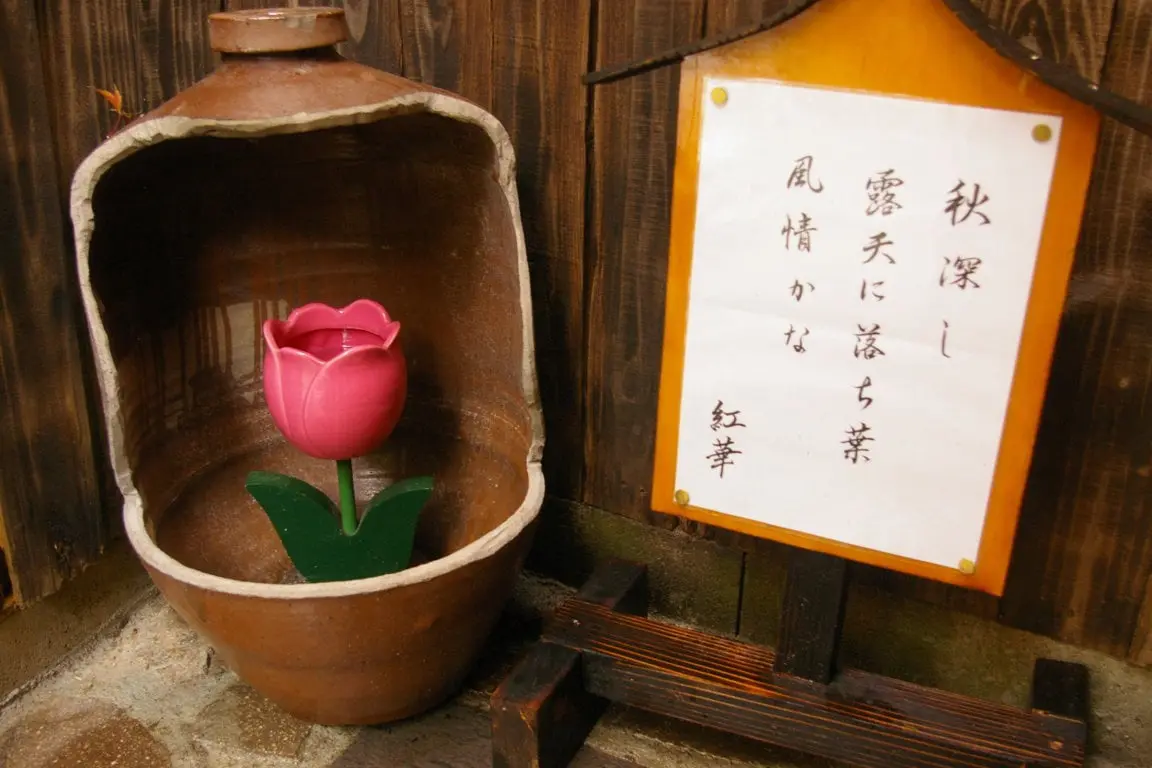 秋深し
露天に落ち葉
風情かな
紅華